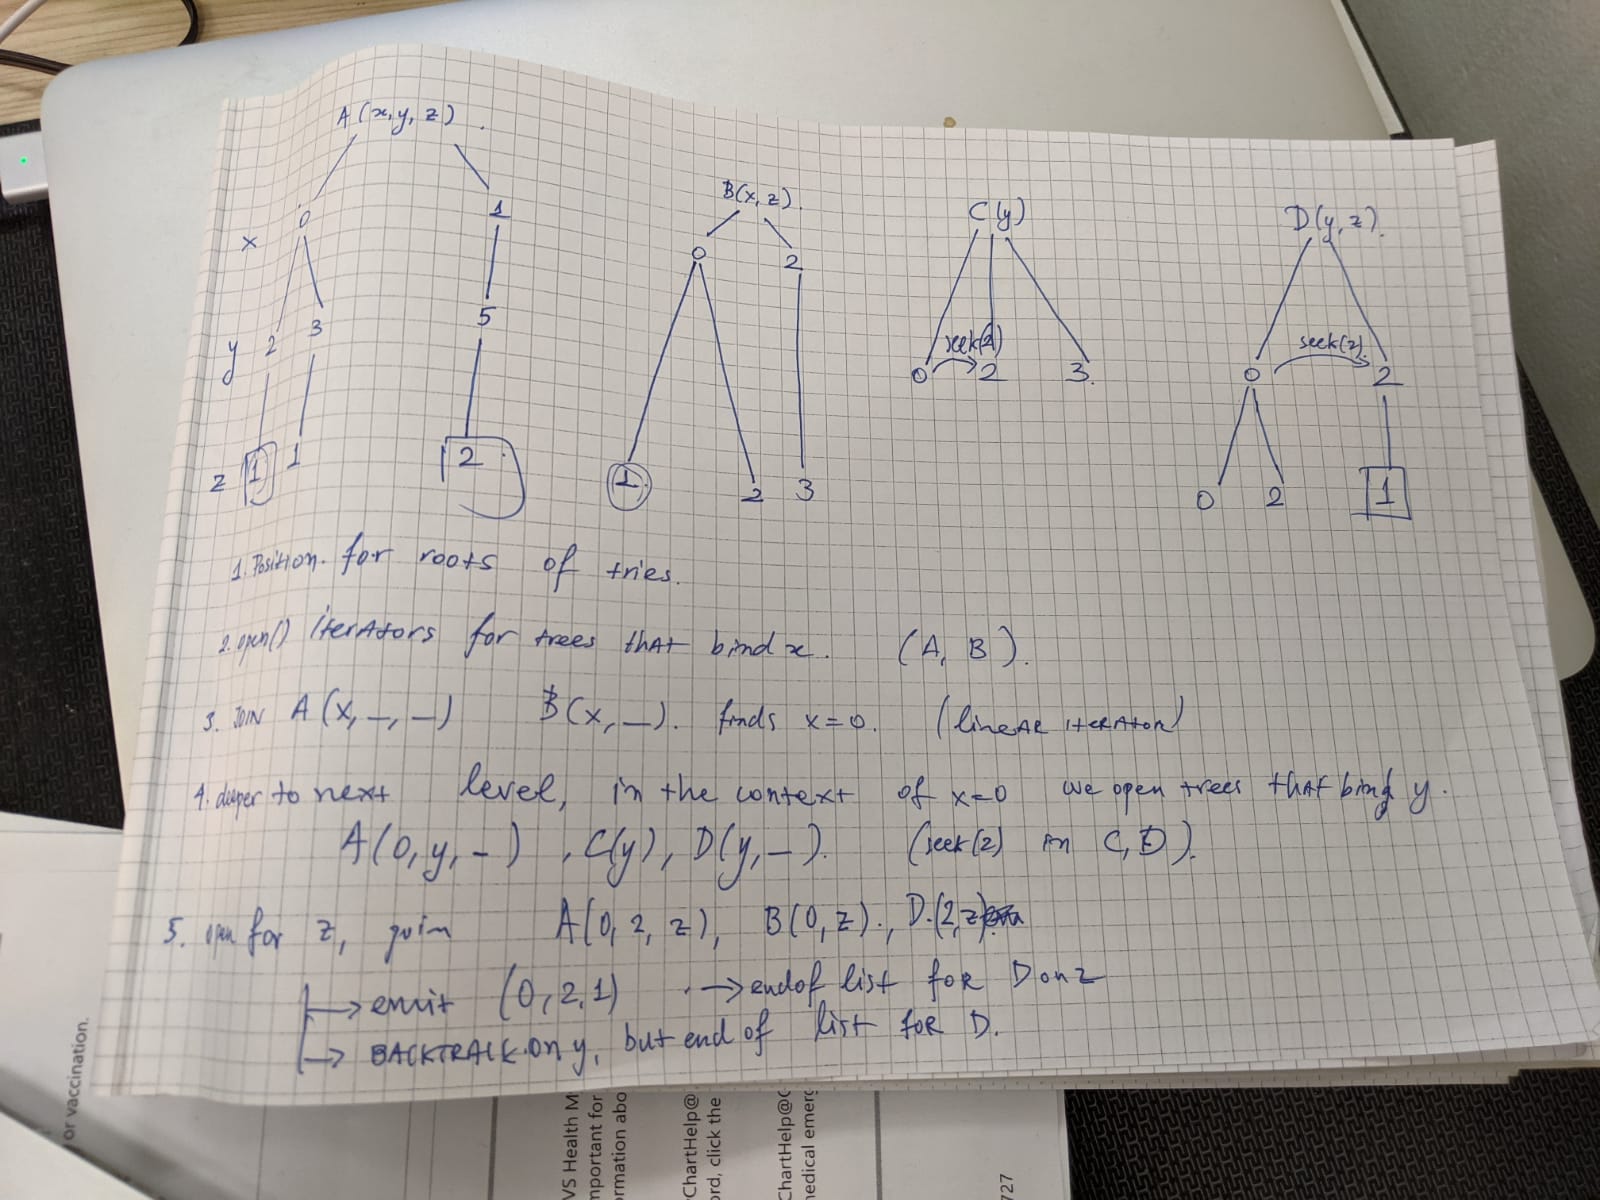 A (x, y, z).
B(x, z).
C(y)
D(y, z).
x 0 1 0 2
y 2 3 5
seek(2) seek(2)
0 2 3. 0 2
z 1 1 2 1 2 3 0 2 1
1. Position. for roots of tries.
2. open() iterators for trees that bind x. (A, B).
3. JOIN A (x, _, _) B(x, _). finds x=0. (linear iterator)
4. deeper to next level, in the context of x=0 we open trees that bind y.
A(0, y, _), C(y), D(y, _). (seek(2) in C, D).
5. open for z, join A(0, 2, z), B(0, z)., D.(2, z)
→ emit (0, 2, 1) → end of list for D on z
→ BACKTRACK on y, but end of list for D.
or vaccination.
VS Health M
mportant for
ormation abo
ChartHelp@
ord, click the
ChartHelp@C
medical emerg
727